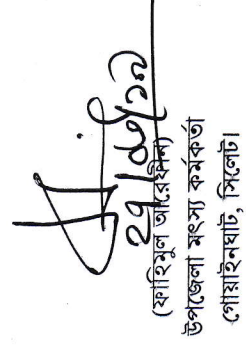 (ফাহিমুল আরেফীন)
উপজেলা মৎস্য কর্মকর্তা
গোয়াইনঘাট, সিলেট।